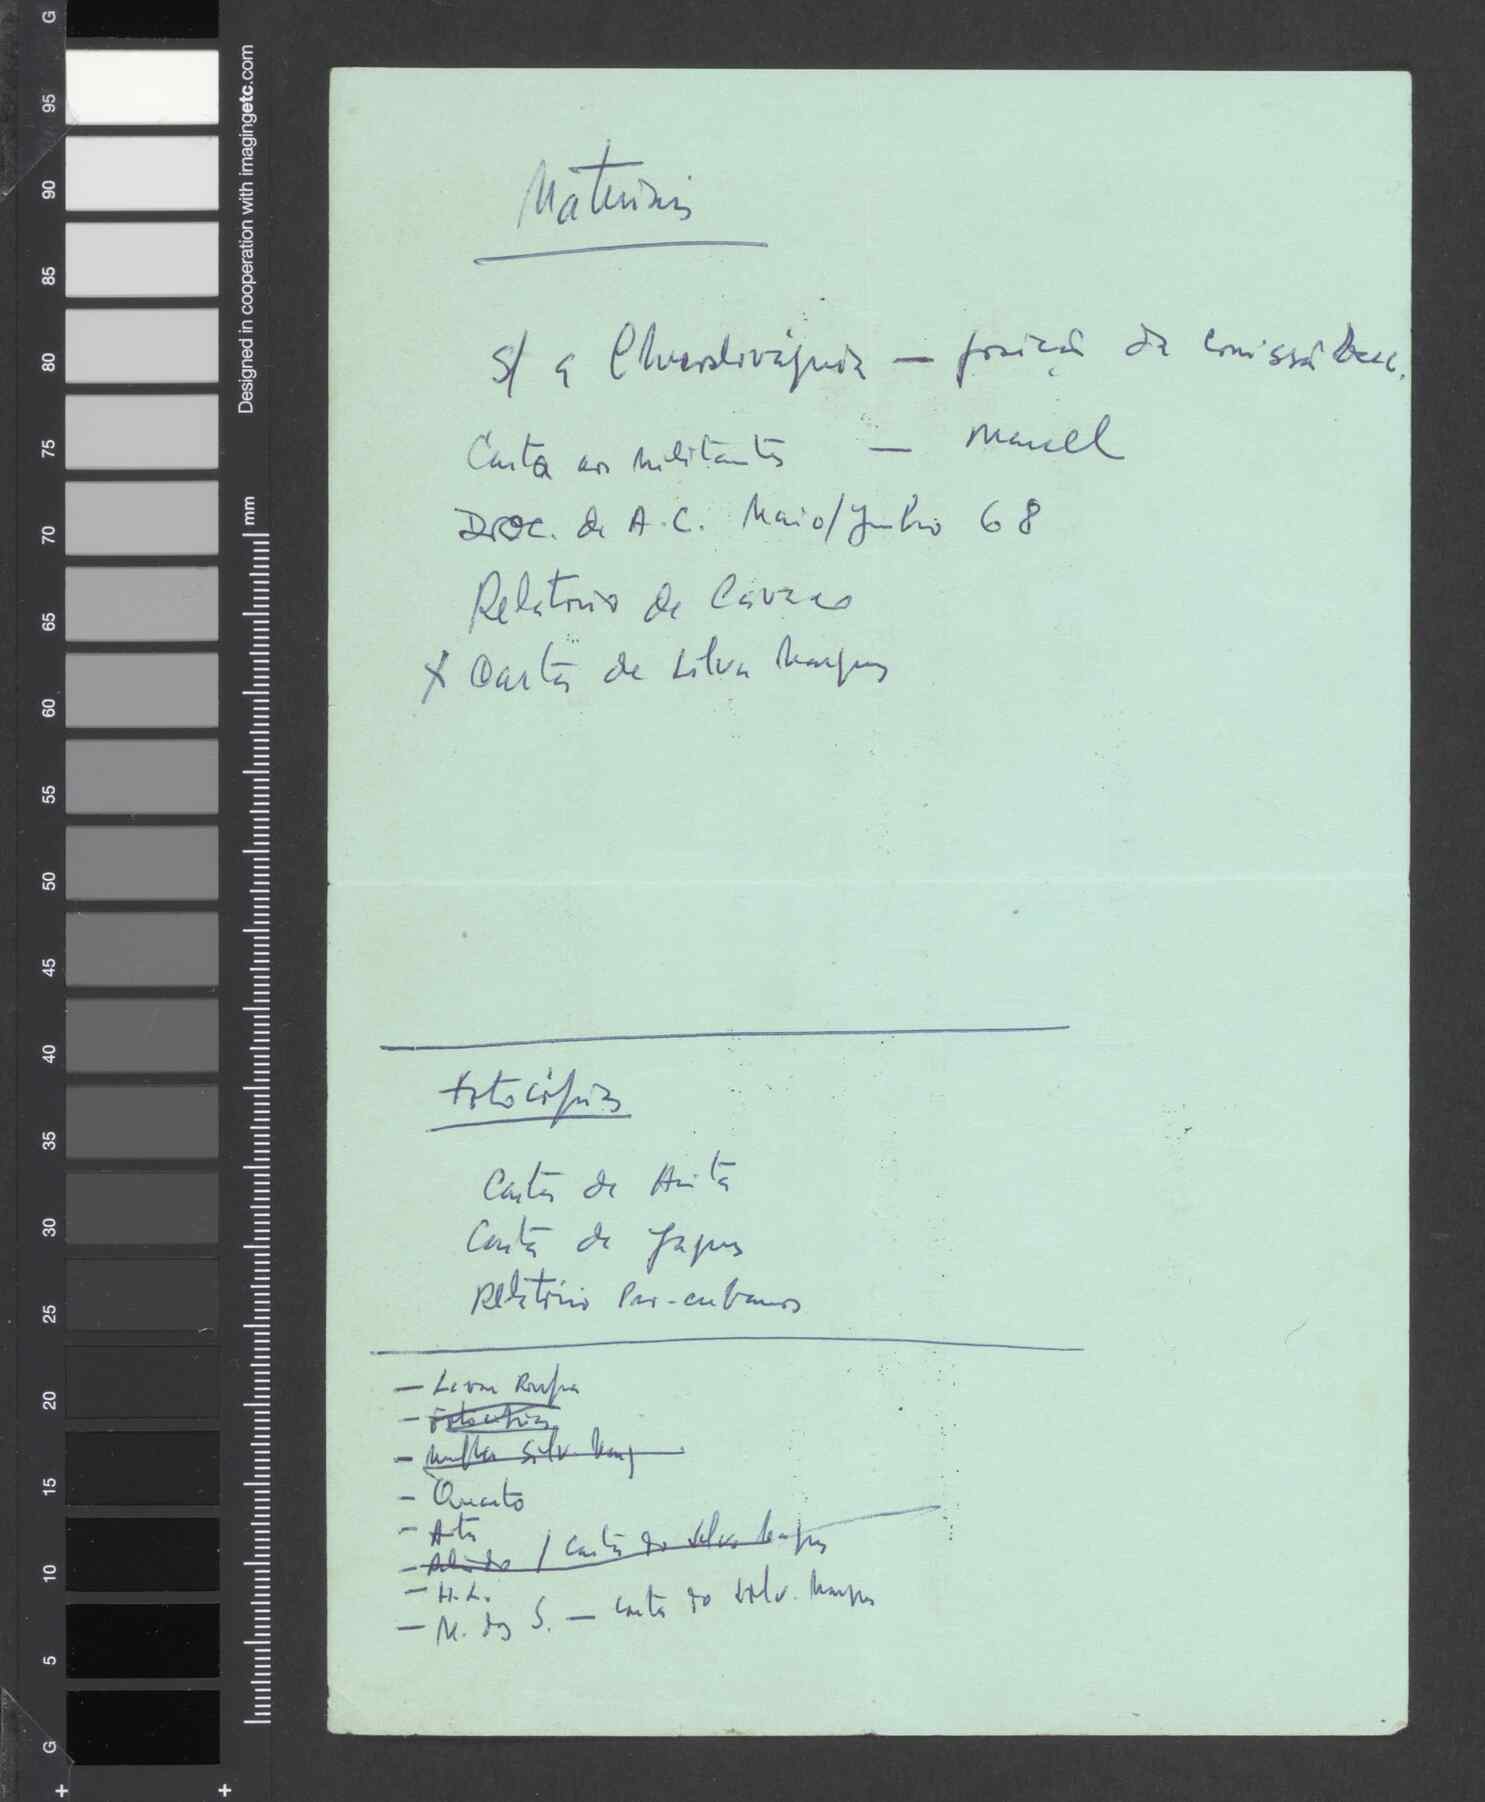 G
95
90
85
80
75
70
65
60
55
50
45
40
35
30
25
20
15
10
5
G
Designed in cooperation with imagingetc.com
mm
Materiais
s/ a — posição da comissã
Carta aos militantes — Manuel
Doc. de A.C. Maio/Junho 68
Relatorio de Cavaco
X Carta de Silva Marques
Fotocópias
Carta de Anita
Carta de Jaques
Relatório Pro-cubanos
— Levar Roupa
— Fotocópias
— Mulher Silv. Marq
— Quarto
—
— / Carta do Silva Marques
— H.L.
— M. dos S. — Carta do Silv. Marques